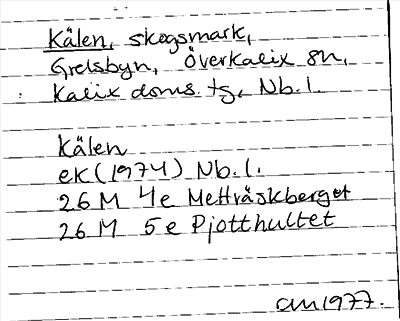 Kålen, skogsmark,
Grelsbyn, Överkalix sn,
Kalix doms. tg, Nb. l.
Kålen
ek (1974) Nb. l.
26 M 4e Metträskberget
26 M 5e Pjotthultet
am 1977.